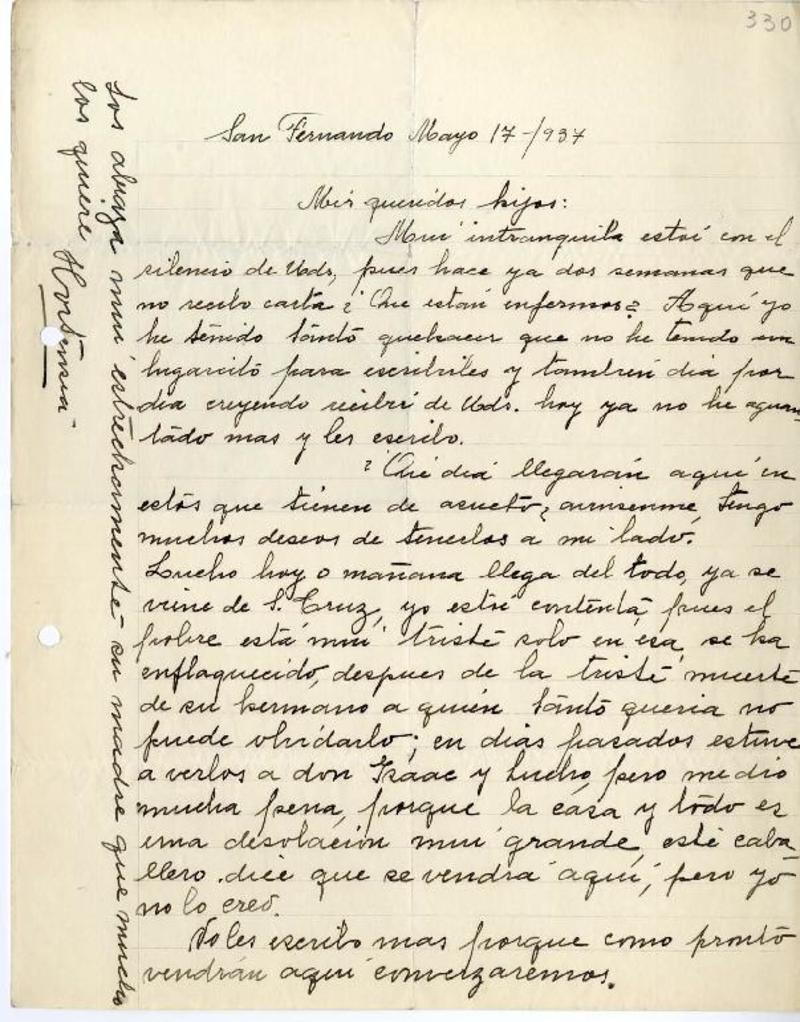 330
San Fernando Mayo 17-/937
Mis queridos hijos:
Mui intranquila estoi con el
silencio de Uds, pues hace ya dos semanas que
no recibo carta ¿Que están enfermos? Aquí yo
he tenido tánto quehacer que no he tenido un
lugarcito para escribiles y tambien dia por
dia creyendo recibir de Uds. hoy ya no he aguan
tado mas y les escribo.
¿Qué dia llegarán aquí en
estos que tienen de asueto? avisenme, tengo
muchos deseos de tenerlos a mi lado.
Lucho hoy o mañana llega del todo, ya se
viene de S. Cruz, yo estoi contenta pues el
pobre está mui triste solo en ésa, se ha
enflaquecido, despues de la triste muerte
de su hermano a quien tánto queria no
puede olvidarlo; en dias pasados estuve
a verlos a don Isaac y Lucho, pero me dió
mucha pena, porque la casa y todo es
una desolación mui grande, este caba_
llero dice que se vendrá aquí, pero yo
no lo creo.
No les escribo mas porque como pronto
vendrán aquí converzaremos.
Los abraza mui estrechamente su madre que mucho
los quiere Hortensia